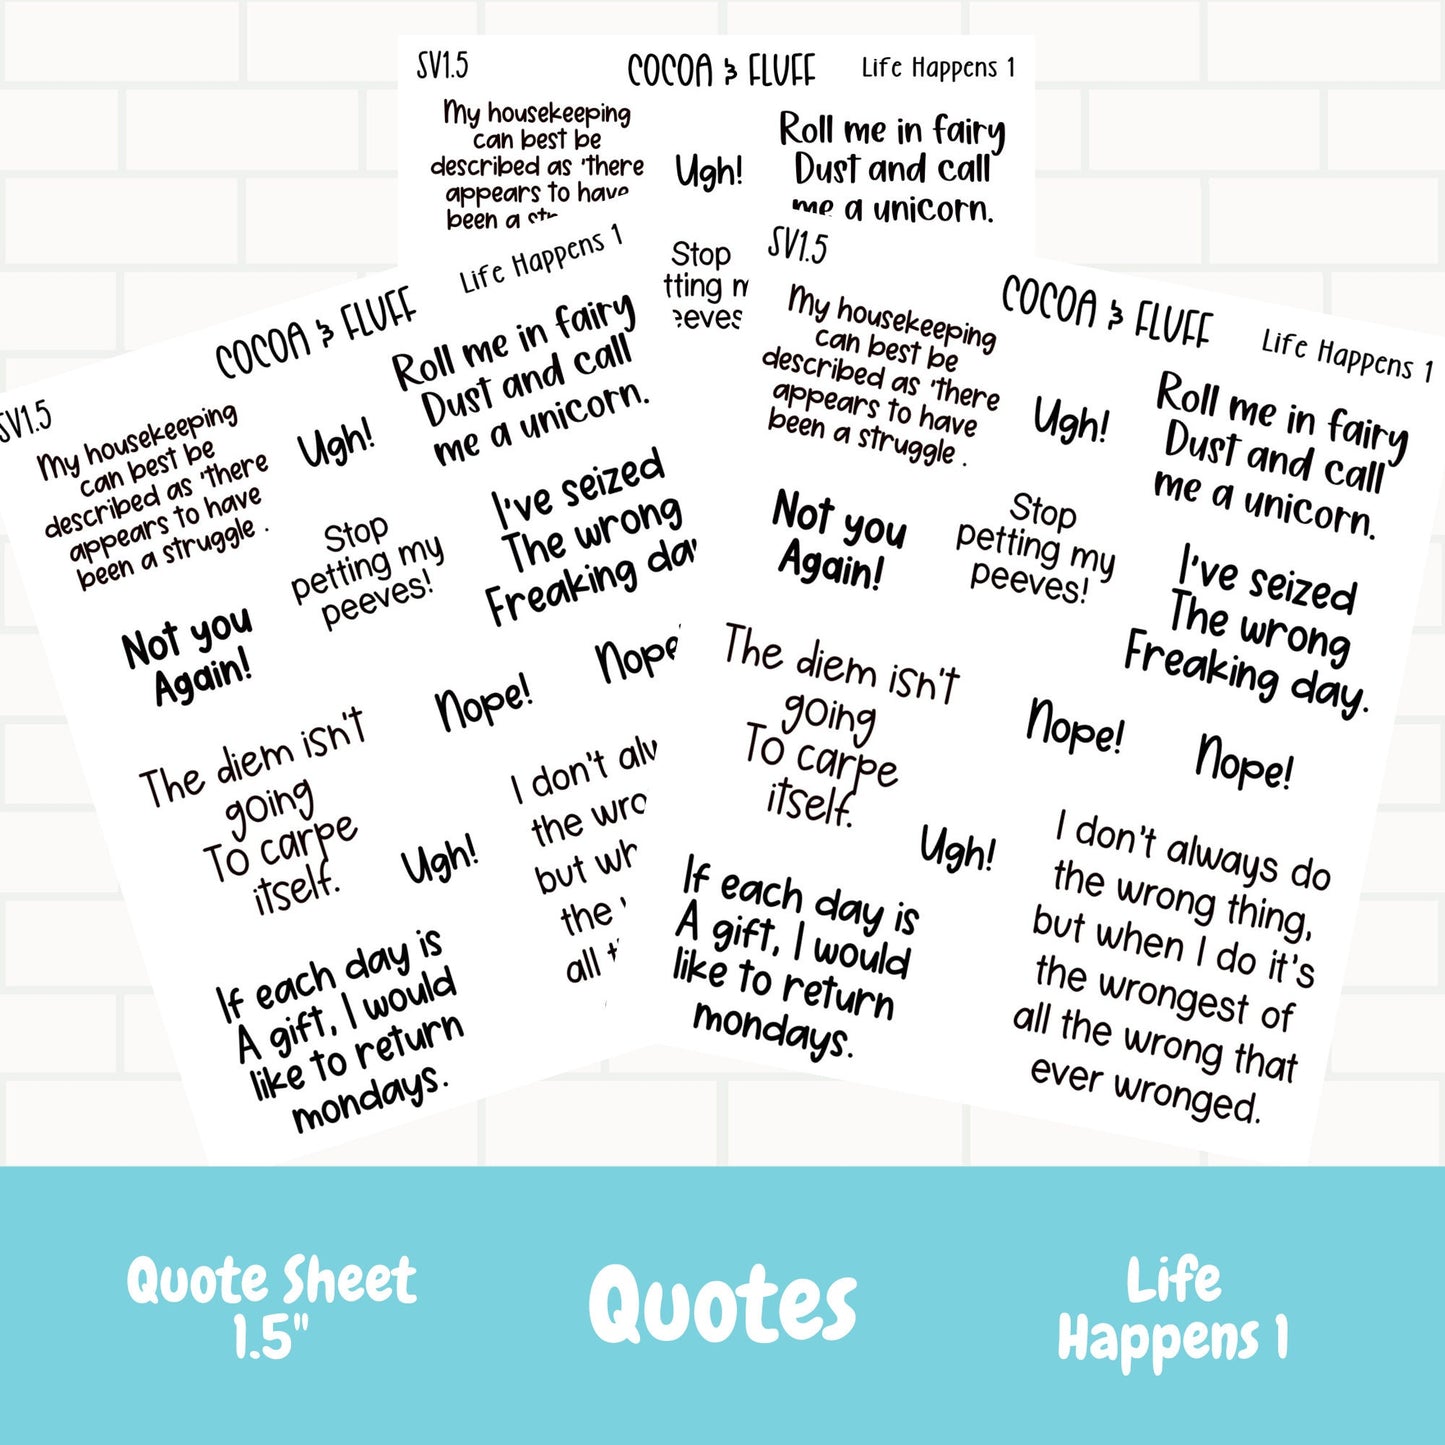 SV1.5
COCOA & FLUFF
Life Happens 1
My housekeeping
can best be
described as 'there
appears to have
been a
Ugh!
Roll me in fairy
Dust and call
me a unicorn.
Stop
my
SV1.5
COCOA & FLUFF
Life Happens 1
My housekeeping
can best be
described as 'there
appears to have
been a struggle .
Ugh!
Roll me in fairy
Dust and call
me a unicorn.
Not you
Again!
Stop
petting my
peeves!
I've seized
The wrong
Freaking day
The diem isn't
going
To carpe
itself.
Nope!
Nope
Ugh!
I don't
the
but
the
all
If each day is
A gift, I would
like to return
mondays.
SV1.5
COCOA & FLUFF
Life Happens 1
My housekeeping
can best be
described as 'there
appears to have
been a struggle .
Ugh!
Roll me in fairy
Dust and call
me a unicorn.
Not you
Again!
Stop
petting my
peeves!
I've seized
The wrong
Freaking day.
The diem isn't
going
To carpe
itself.
Nope!
Nope!
Ugh!
I don't always do
the wrong thing,
but when I do it's
the wrongest of
all the wrong that
ever wronged.
If each day is
A gift, I would
like to return
mondays.
Quote Sheet
1.5"
Quotes
Life
Happens 1